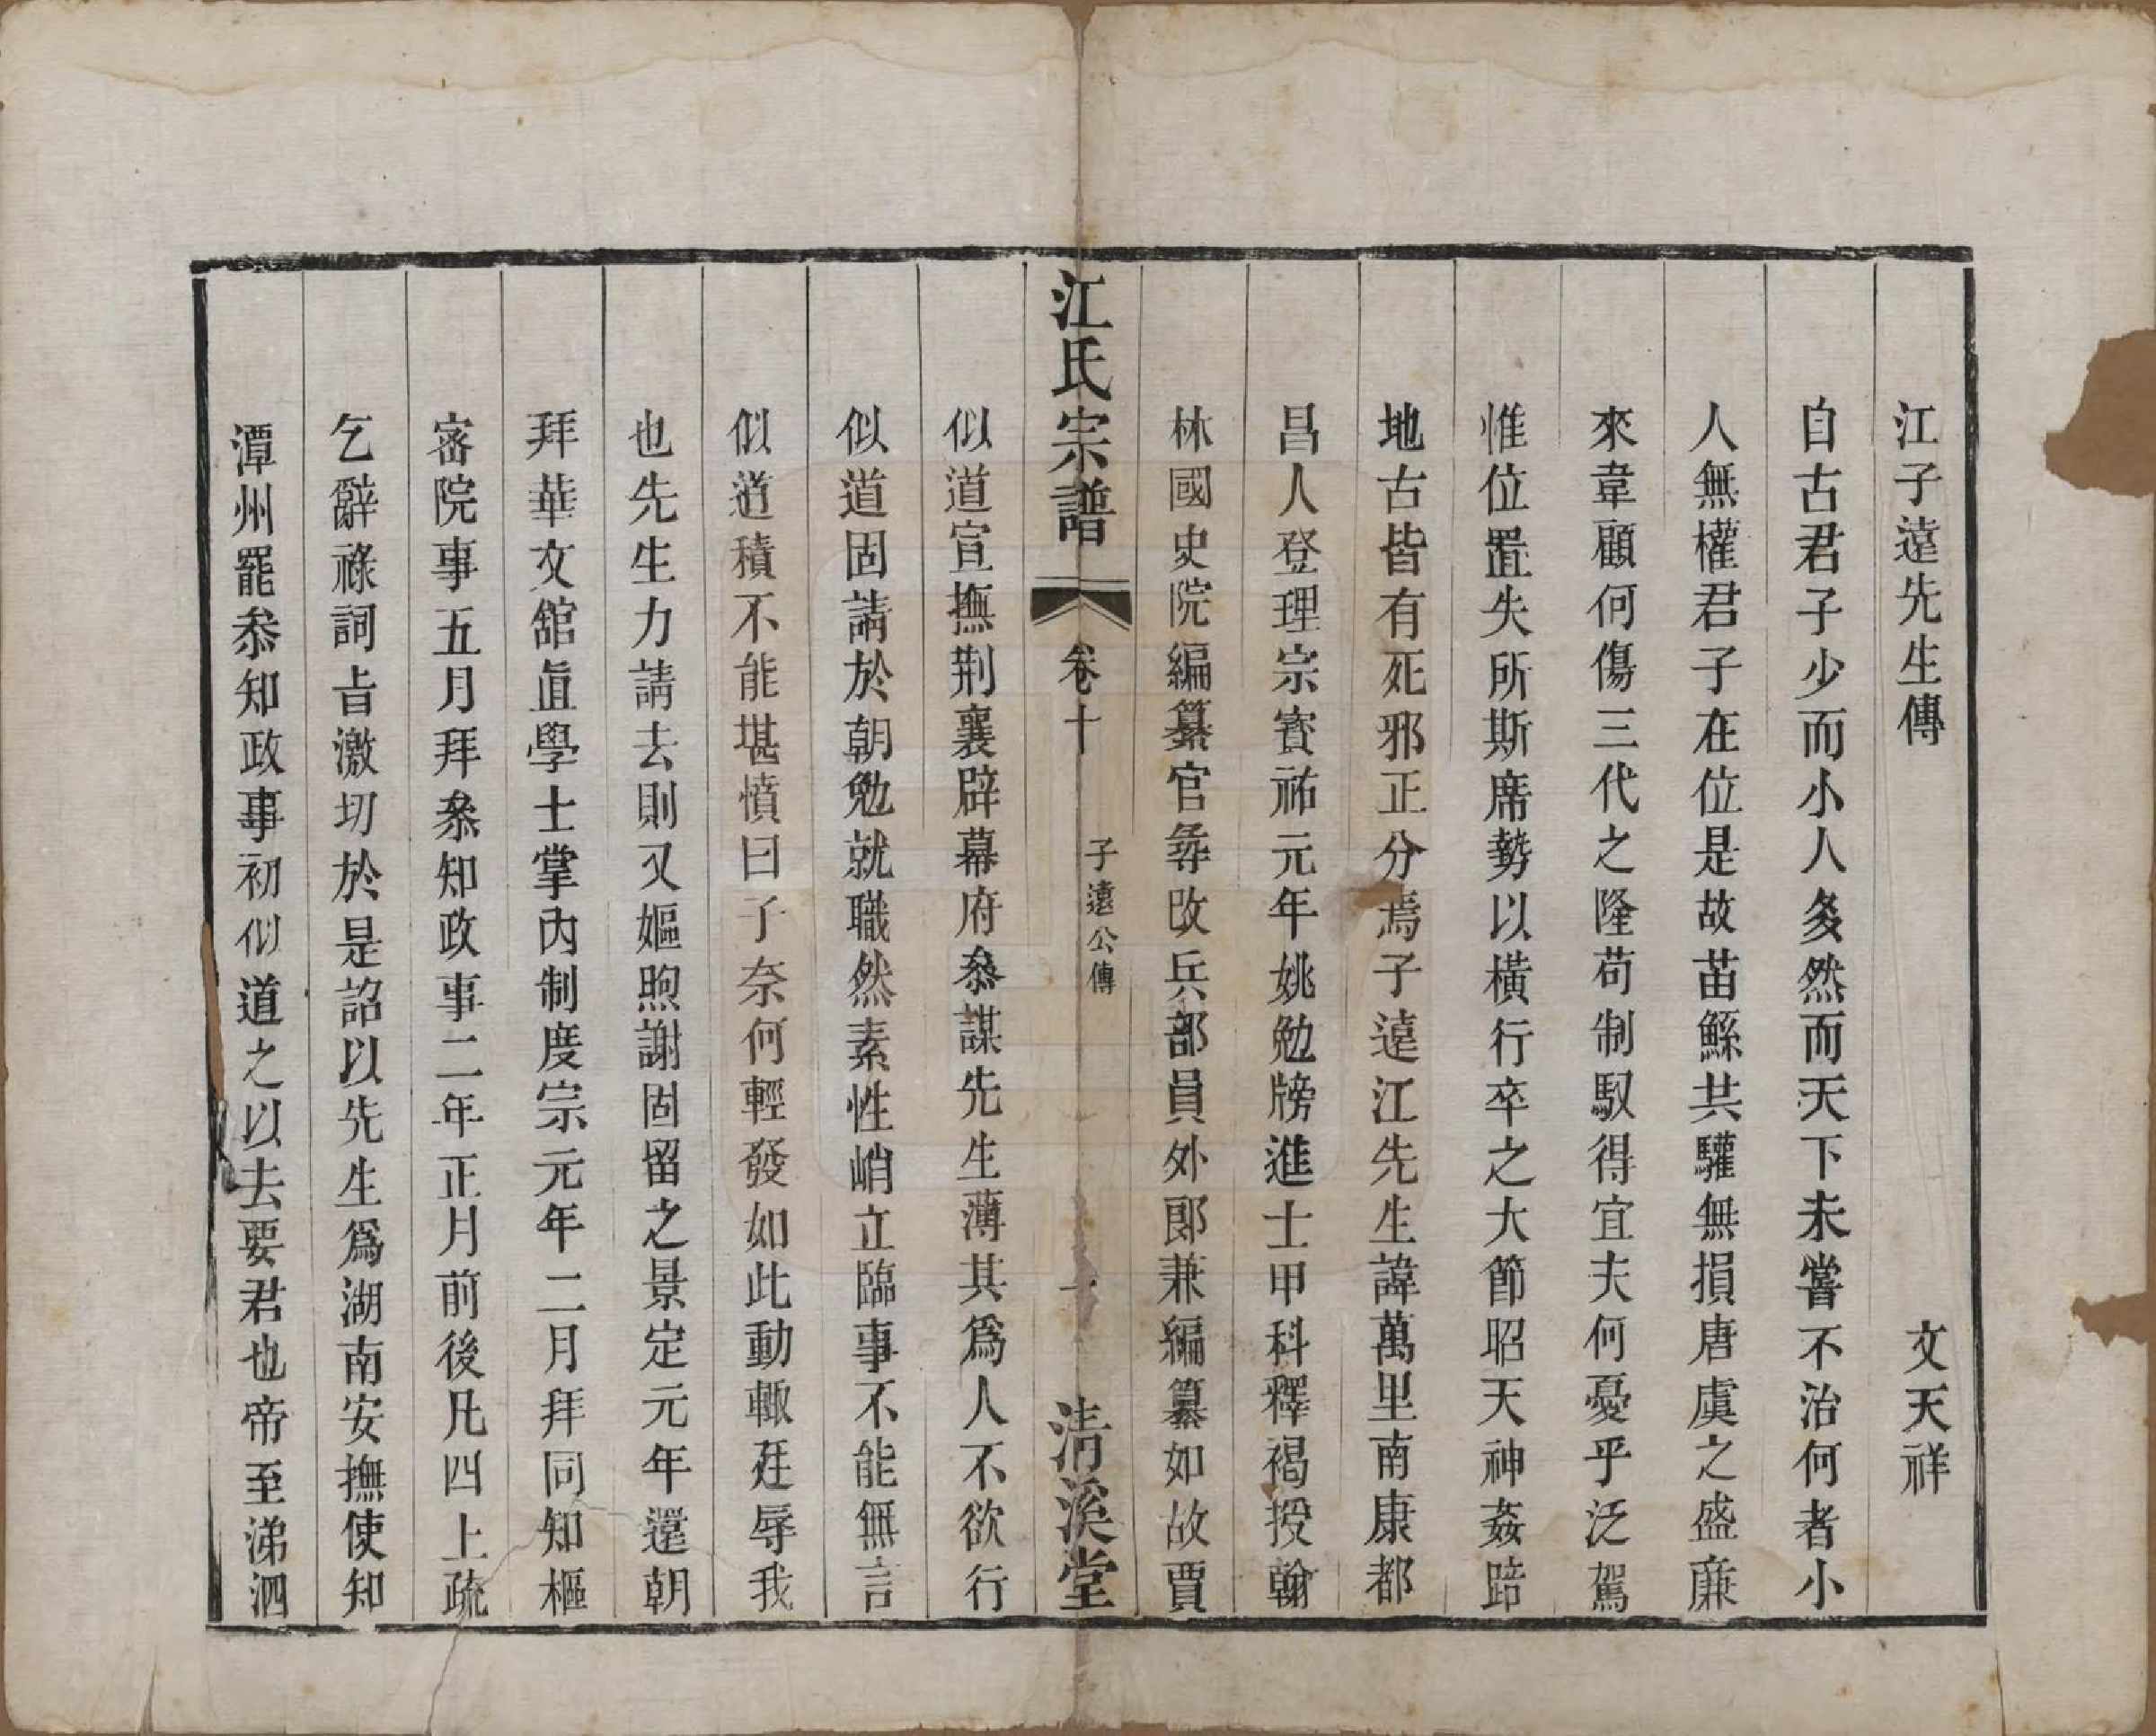 江子遠先生傳　文天祥
自古君子少而小人多然而天下未嘗不治何者小
人無權君子在位是故苗鯀共驩無損唐虞之盛廉
來韋顧何傷三代之隆苟制馭得宜夫何憂乎泛駕
惟位置失所斯席勢以橫行卒之大節昭天神姦踣
地古皆有死邪正分焉子遠江先生諱萬里南康都
昌人登理宗寳祐元年姚勉牓進士甲科釋褐授翰
林國史院編纂官尋改兵部員外郎兼編纂如故賈
江氏宗譜　卷十　子遠公傳　一　清溪堂
似道宣撫荆襄辟幕府叅謀先生薄其爲人不欲行
似道固請於朝勉就職然素性峭立臨事不能無言
似道積不能堪憤曰子奈何輕發如此動輙廷辱我
也先生力請去則又嫗煦謝固留之景定元年還朝
拜華文舘直學士掌內制度宗元年二月拜同知樞
宻院事五月拜叅知政事二年正月前後凡四上疏
乞辭祿詞㫖激切於是詔以先生爲湖南安撫使知
潭州罷叅知政事初似道之以去要君也帝至涕泗